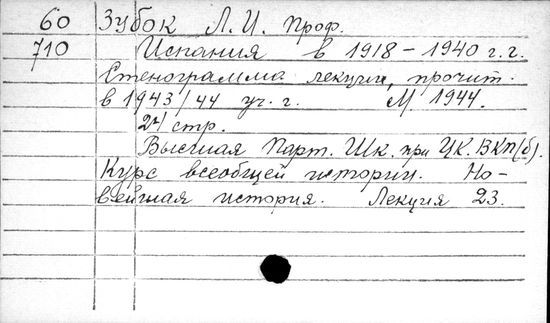 60 Зубок Л. И. проф.
710 Испания в 1918 - 1940 г.г.
Стенограмма лекции, прочит.
в 1943/44 уч. г. М. 1944.
24 стр.
Высшая Парт. Шк. при ЦК. ВКП(б).
Курс всеобщей истории. Но-
вейшая история. Лекция 23.